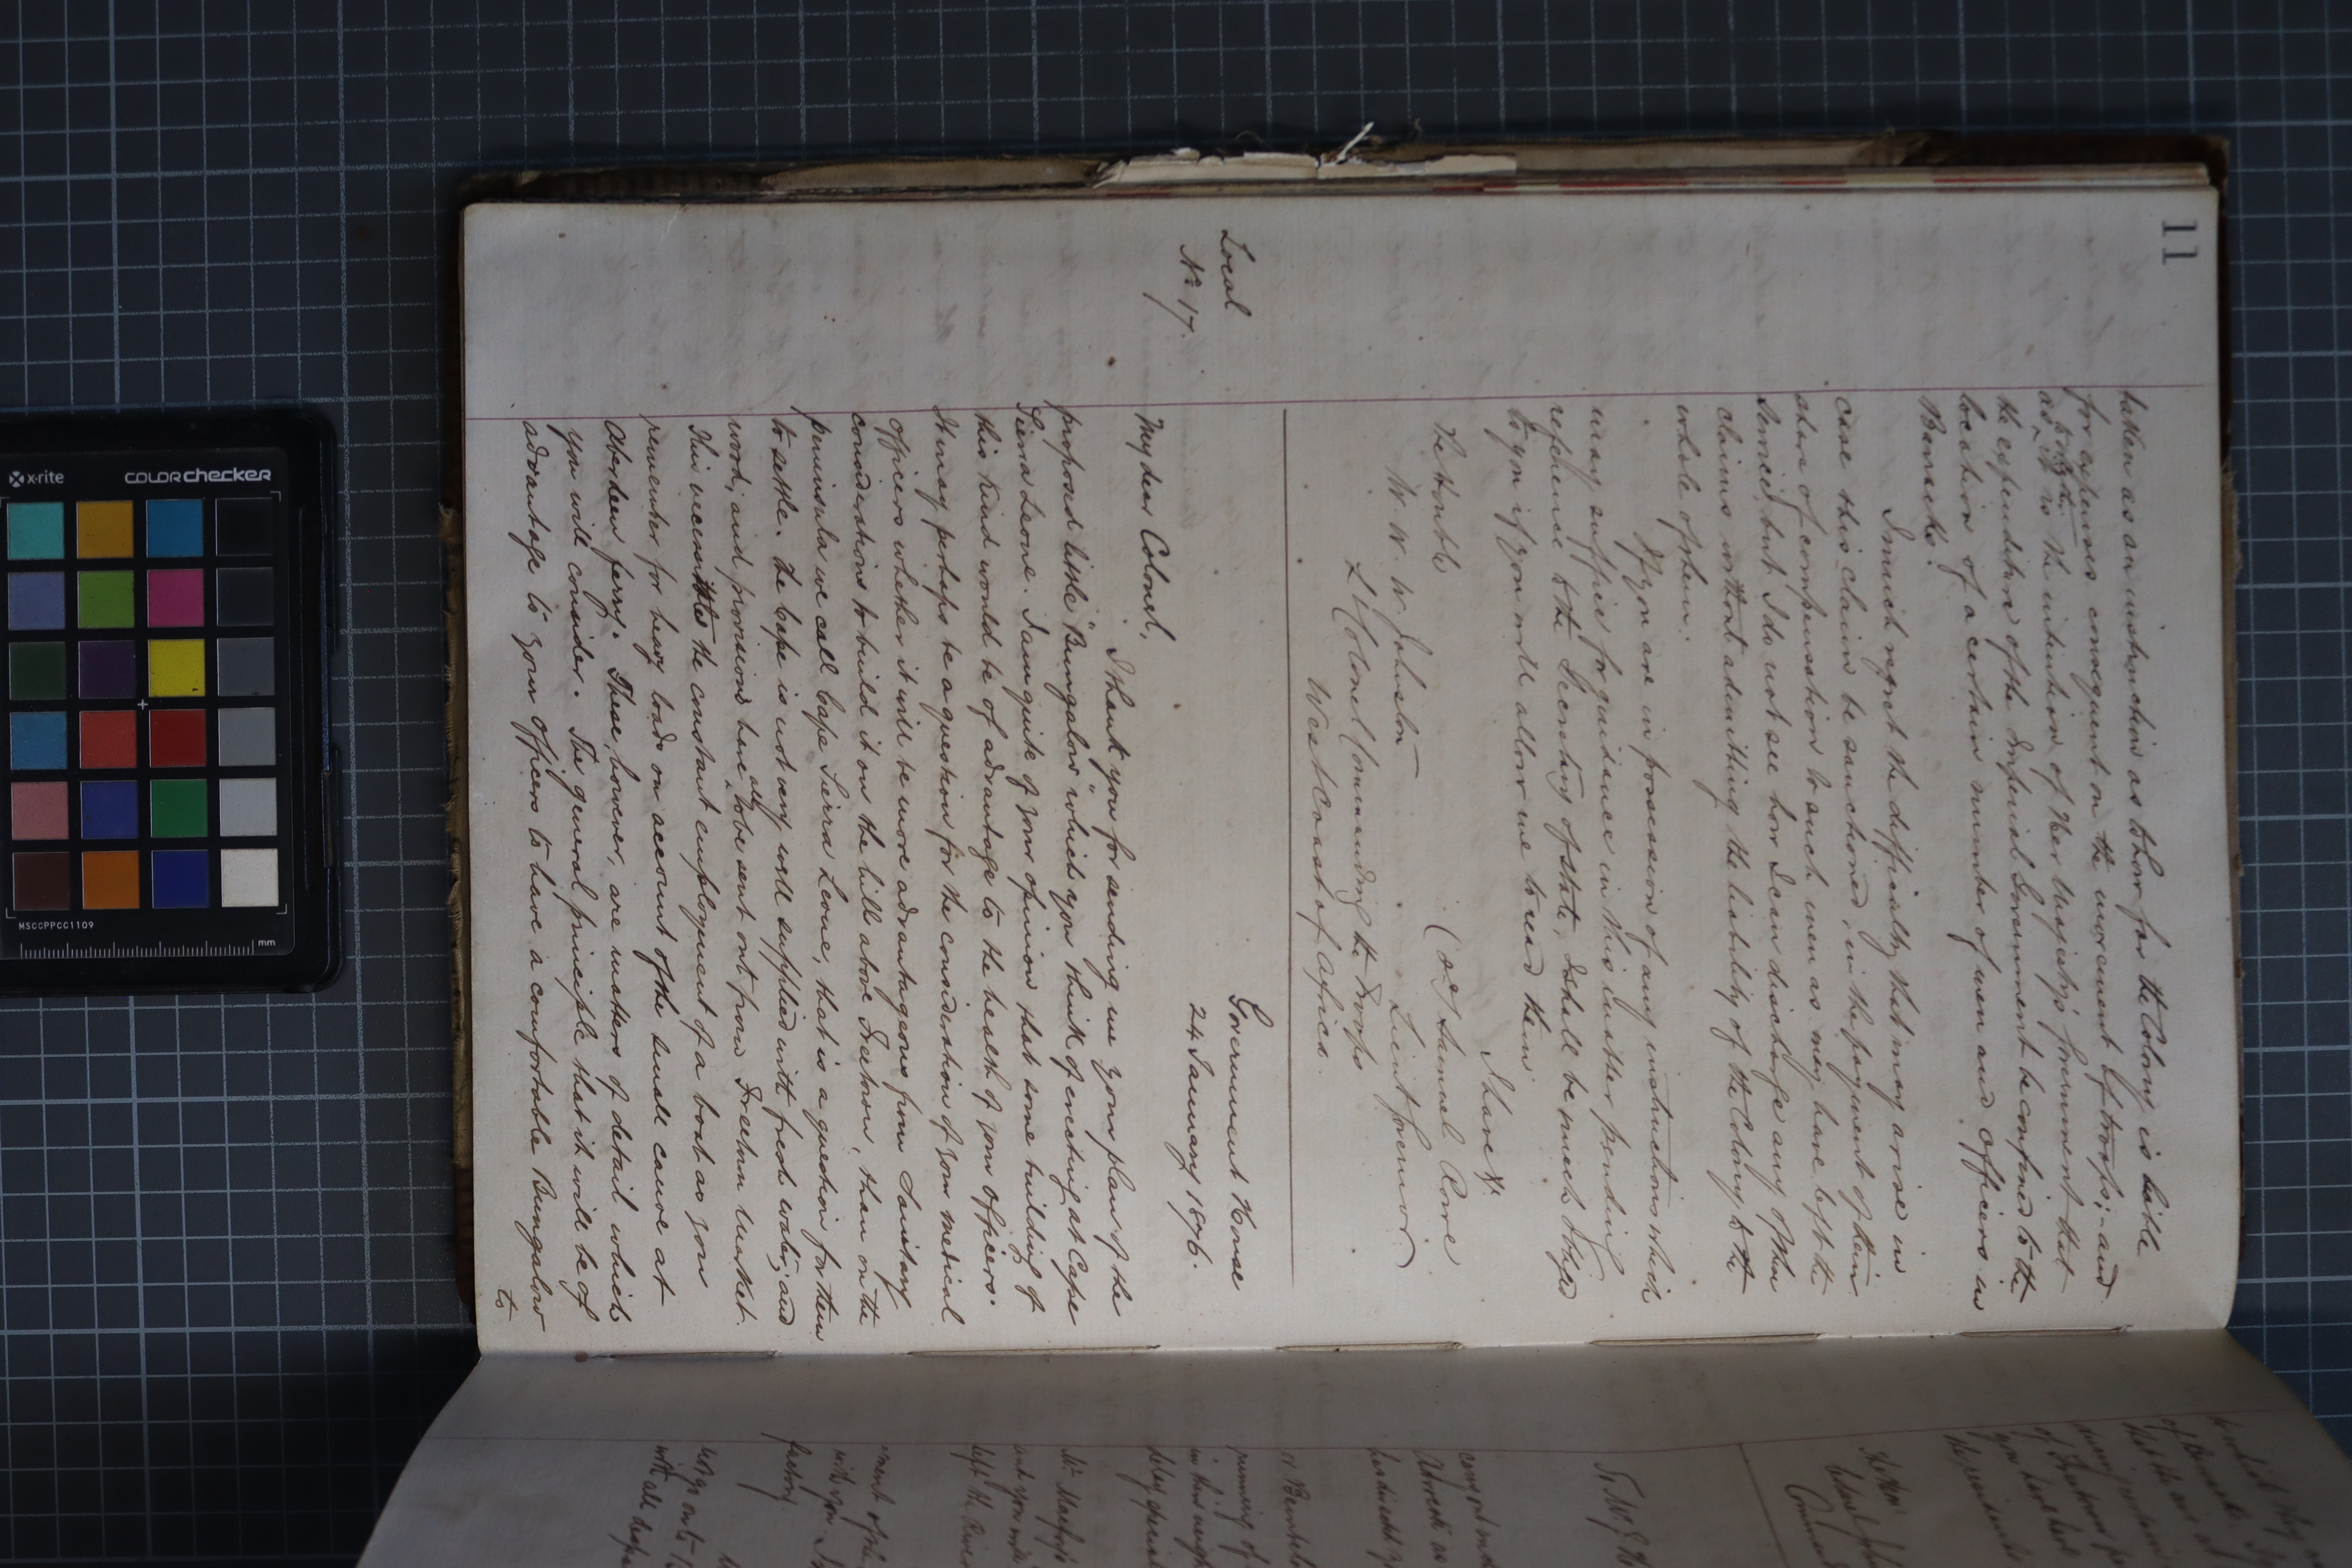 11
taken as an instruction as to how far the Colony is liable
for expenses consequent on the movement of troops; and
as to whether it is the intention of Her Majesty's Government that
the expenditure of the Imperial Government be confined to the
location of a certain number of men and officers in
Barracks.
I much regret the difficulty that may arise in
case this claim be sanctioned, in the payment of their
share of compensation to such men as may have left the
Service, but I do not see how I can discharge any of the
claims without admitting the liability of the Colony to the
whole of them.
If you are in possession of any instructions which
may suffice for guidance in this matter pending
reference to the Secretary of State, I shall be much obliged
to you if you will allow me to read them.
I have &c.
(Sd) Samuel Rowe
Lieut Governor
The Honble
W. W. W. Johnston
Lt Colonel Commanding the Troops
West Coast of Africa.
Local
No. 17.
Government House
24 January 1876.
My dear Colonel,
Thank you for sending me your plan of the
proposed little "Bungalow" which you think of erecting at Cape
Sierra Leone. I am quite of your opinion that some building of
this kind would be of advantage to the health of your officers.
It may perhaps be a question for the consideration of your medical
officers whether it will be more advantageous from Sanitary
considerations to build it on the hill above Freetown, than on the
peninsula we call Cape Sierra Leone, that is a question for them
to settle. The Cape is not very well supplied with fresh water, and
wood, and provisions have all to be sent out from Freetown market.
This necessitates the constant employment of a boat as you
remember for heavy loads on account of the small canoe at
Aberdeen ferry. These, however, are matters of detail which
you will consider. The general principle that it will be of
advantage to your officers to have a comfortable Bungalow
to
x-rite
COLORchecker
MSCCPPCC1109
mm